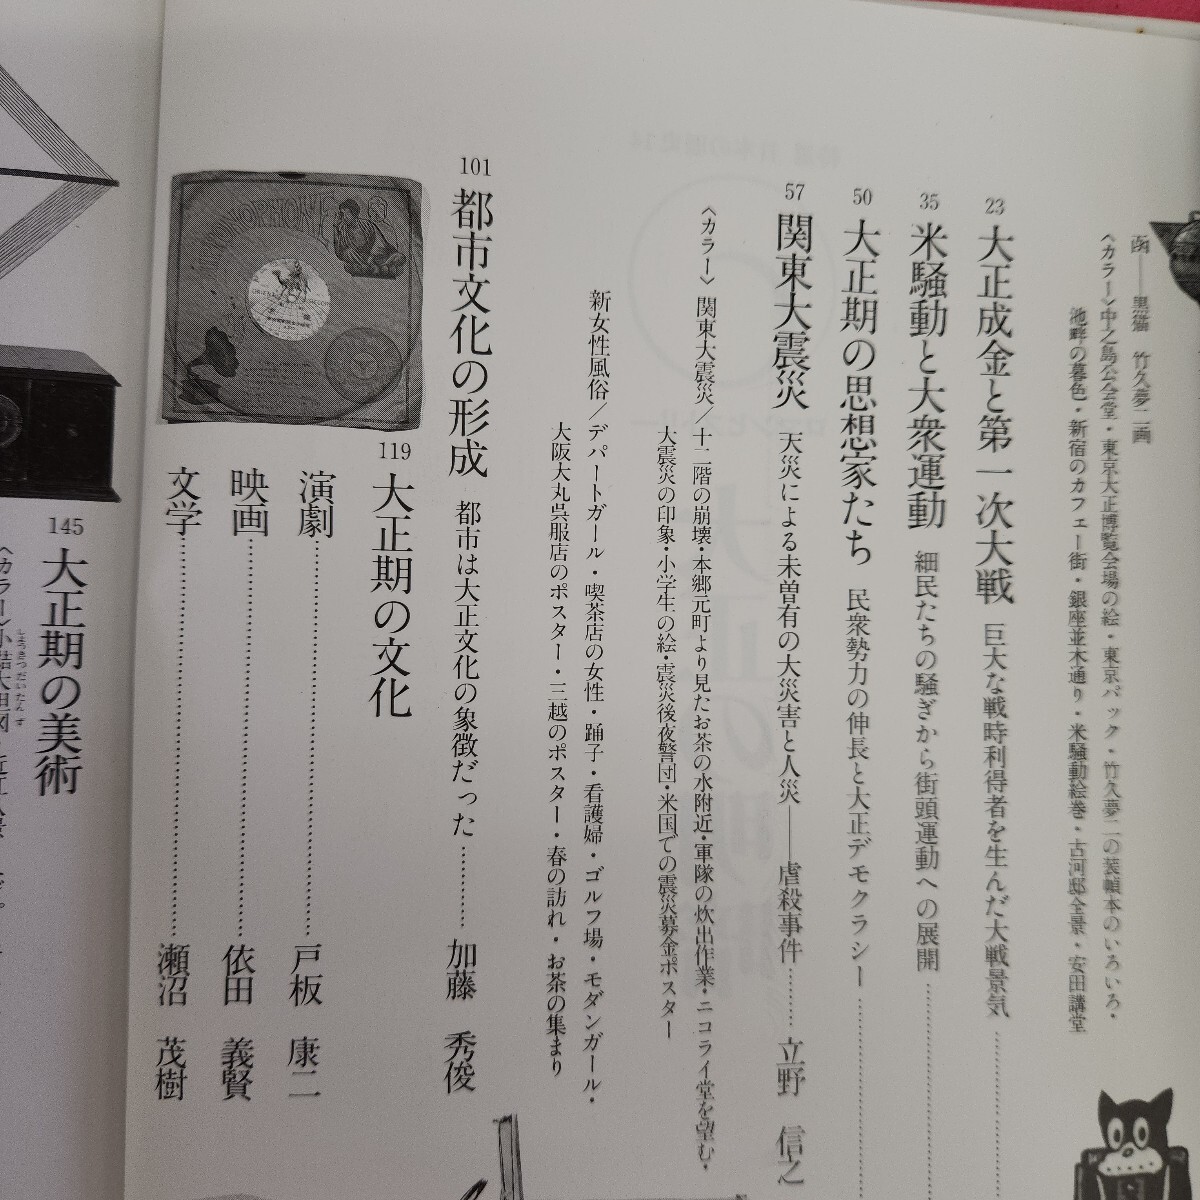 函――黒猫 竹久夢二画
〈カラー〉中之島公会堂・東京大正博覧会場の絵・東京パック・竹久夢二の装幀本のいろいろ・
池畔の暮色・新宿のカフェー街・銀座並木通り・米騒動絵巻・古河邸全景・安田講堂
23 大正成金と第一次大戦 巨大な戦時利得者を生んだ大戦景気
35 米騒動と大衆運動 細民たちの騒ぎから街頭運動への展開
50 大正期の思想家たち 民衆勢力の伸長と大正デモクラシー
57 関東大震災 天災による未曽有の大災害と人災――虐殺事件 立野 信之
〈カラー〉 関東大震災/十二階の崩壊・本郷元町より見たお茶の水附近・軍隊の炊出作業・ニコライ堂を望む・
大震災の印象・小学生の絵・震災後夜警団・米国での震災募金ポスター
新女性風俗/デパートガール・喫茶店の女性・踊子・看護婦・ゴルフ場・モダンガール・
大阪大丸呉服店のポスター・三越のポスター・春の訪れ・お茶の集まり
101 都市文化の形成 都市は大正文化の象徴だった 加藤 秀俊
119 大正期の文化
演劇 戸板 康二
映画 依田 義賢
文学 瀬沼 茂樹
145 大正期の美術